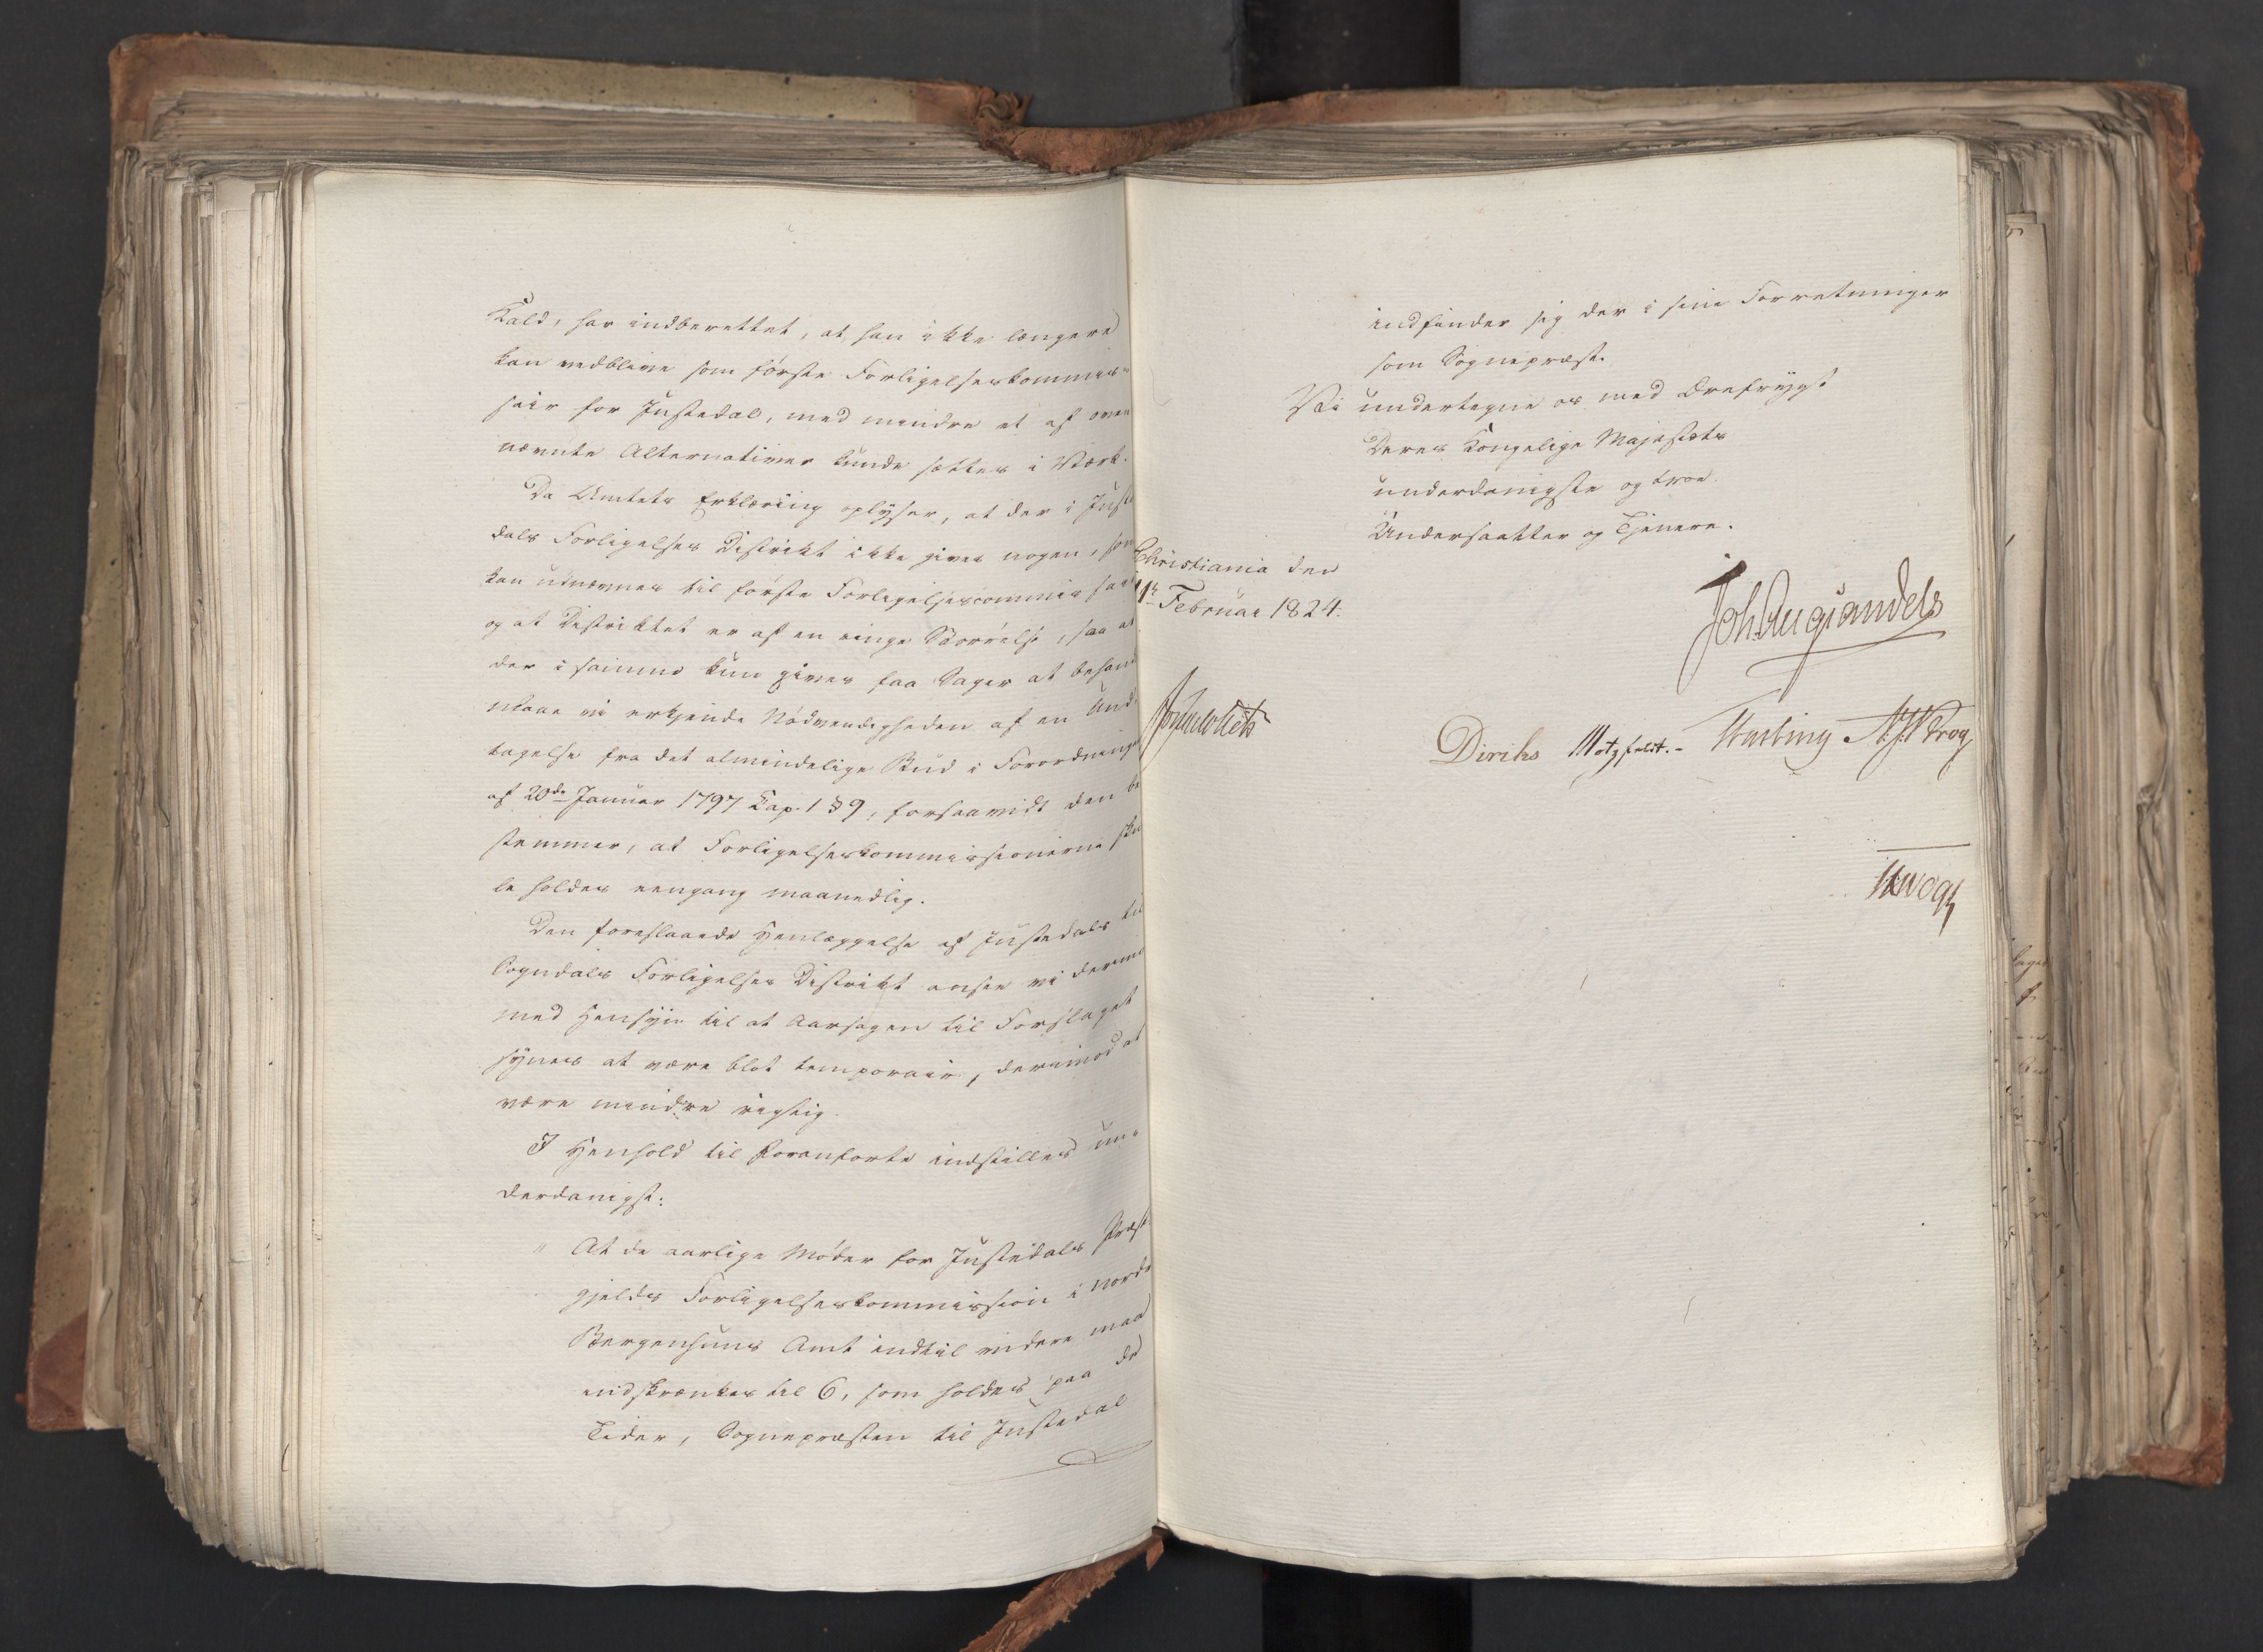 Kald, har indberettet, at han ikke længere
kan vedblive som første Forligelseskommis-
sair for Justedal, med mindre et af oven
nævnte Alternativer kunde sættes i Værk.
Da Amtets Erklæring oplyser, at der i Juste
dals Forligelses Distrikt ikke gives nogen, som
kan udnævnes til første Forligelsescommissair
og at Distriktet er af en ringe Størrelse, saa at
der i samme kun gives faa Sager at behand
maae vi erkjende Nødvendigheden af en Und
tagelse fra det almindelige Bud i Forordningen
af 20de Januar 1797 Kap. 1 § 9, forsaavidt den be
stemmer, at Forligelseskommissionerne skul
le holdes eengang maanedlig.
Den foreslaaede Henlæggelse af Justedals til
Sogndals Forligelses Distrikt ansee vi derimod
med Hensyn til at Aarsagen til Forslaget
synes at være blot temporair, derimod at
være mindre rigtig.
I Henhold til Foranførte indstilles un-
derdanigst:
" At de aarlige Møder for Justedals Præste
gjelds Forligelseskommission i nordre
Bergenhuus Amt indtil videre maa
indskrænkes til 6, som holdes paa de
Tider, Sognepræsten til Justedal
indfinder sig der i sine Forretninger
som Sognepræst.
Vi undertegne os med Ærefrygt
Deres Kongelige Majestæts
underdanigste og troe
Undersaatter og Tjenere.
Christiania den
11te Februar 1824.
Joh Aug Sandels
Diriks Motzfeldt.- N. J. Krog